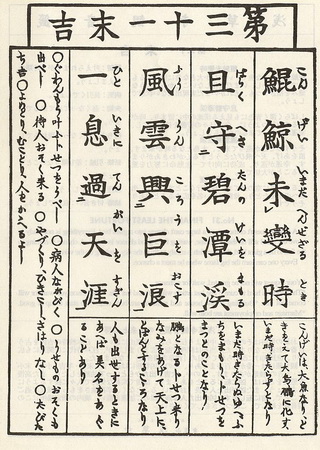 第三十一末吉
鯤鯨未變時
こん げい いまだ へんぜざる とき
こんげいは、大魚なり、と
きをえて大鵬に化す、
いまだ時きたらずとなり
且守碧潭溪
いまだ時きたらぬゆへふ
ちをまもり、トせつを
まつとのことなり
風雲興巨浪
ふう うん きょ ろうを おこす
鵬となるトせつ来り
なみをあげて天上に、
とばんとするこゝろなり
一息過天涯
ひと いきに てん がいを すぎん
人も出世するときに
あへば美名をあぐ
ることあり
○ぐわんもう叶ふトせつをまつべし ○病人ながびく ○うせものおそくも
出べし ○待人おそく来る ○やづくり、ひきこし、さはりなし ○たびだ
ち吉 ○よめとり、むことり、人をかゝへるよし